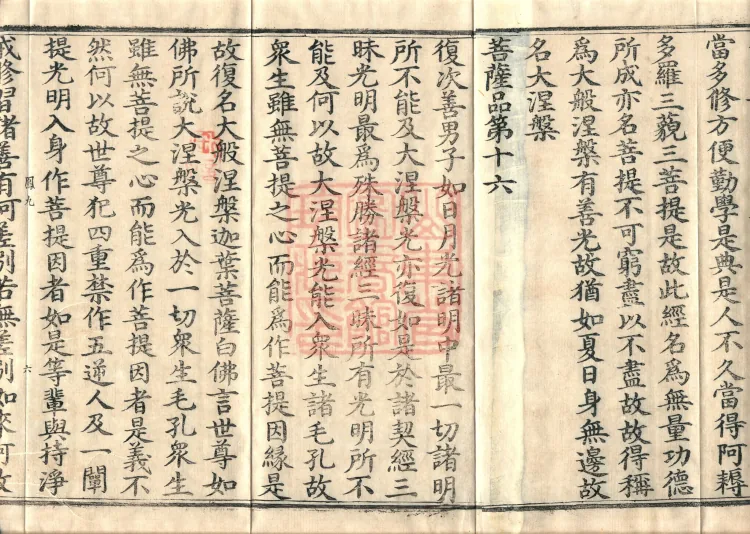 當多修方便勤學是典是人不久當得阿耨
多羅三藐三菩提是故此經名為無量功德
所成亦名菩提不可窮盡以不盡故故得稱
為大般涅槃有善光故猶如夏日身無邊故
名大涅槃
菩薩品第十六
復次善男子如日月光諸明中最一切諸明
所不能及大涅槃光亦復如是於諸契經三
昧光明最為殊勝諸經三昧所有光明所不
能及何以故大涅槃光能入衆生諸毛孔故
衆生雖無菩提之心而能為作菩提因緣是
故復名大般涅槃迦葉菩薩白佛言世尊如
佛所說大涅槃光入於一切衆生毛孔衆生
雖無菩提之心而能為作菩提因者是義不
然何以故世尊犯四重禁作五逆人及一闡
提光明入身作菩提因者如是等輩與持淨
鳳九
六
戒修習諸善有何差別若無差別如來何故